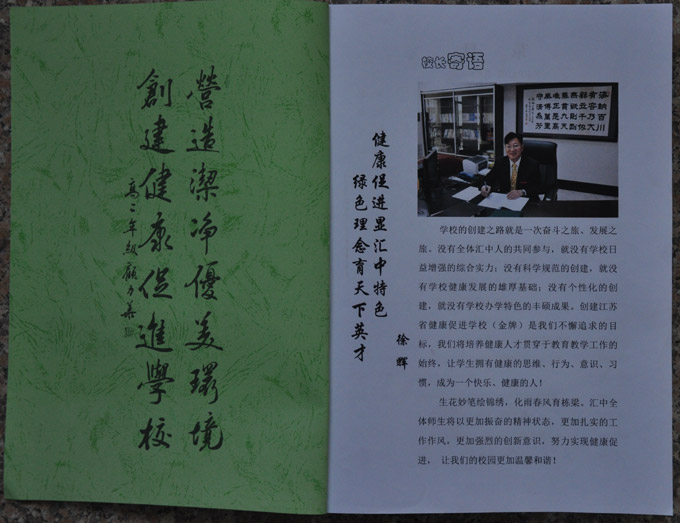 營造潔净優美環境
創建健康促進學校
高二年級顧力華
校长寄语
海納百川
有容乃大
壁立千仞
無欲則剛
健康促进显汇中特色
绿色理念育天下英才
徐辉
学校的创建之路就是一次奋斗之旅、发展之
旅。没有全体汇中人的共同参与，就没有学校日
益增强的综合实力；没有科学规范的创建，就没
有学校健康发展的雄厚基础；没有个性化的创
建，就没有学校办学特色的丰硕成果。创建江苏
省健康促进学校（金牌）是我们不懈追求的目
标，我们将培养健康人才贯穿于教育教学工作的
始终，让学生拥有健康的思维、行为、意识、习
惯，成为一个快乐、健康的人！
生花妙笔绘锦绣，化雨春风育栋梁。汇中全
体师生将以更加振奋的精神状态，更加扎实的工
作作风，更加强烈的创新意识，努力实现健康促
进，让我们的校园更加温馨和谐！